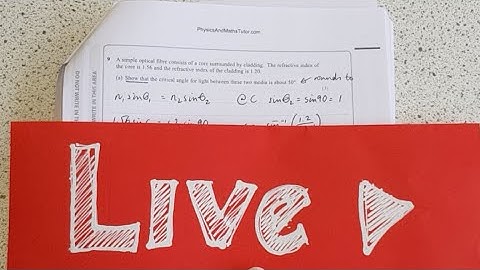 PhysicsAndMathsTutor.com
9 A simple optical fibre consists of a core surrounded by cladding. The refractive index of
the core is 1.56 and the refractive index of the cladding is 1.20.
(a) Show that the critical angle for light between these two media is about 50° or rounds to
n₁ sinθ₁ = n₂ sinθ₂ @ C sinθ₂ = sin90 = 1
sin⁻¹ (1.2
LIVe
WRITE IN THIS AREA